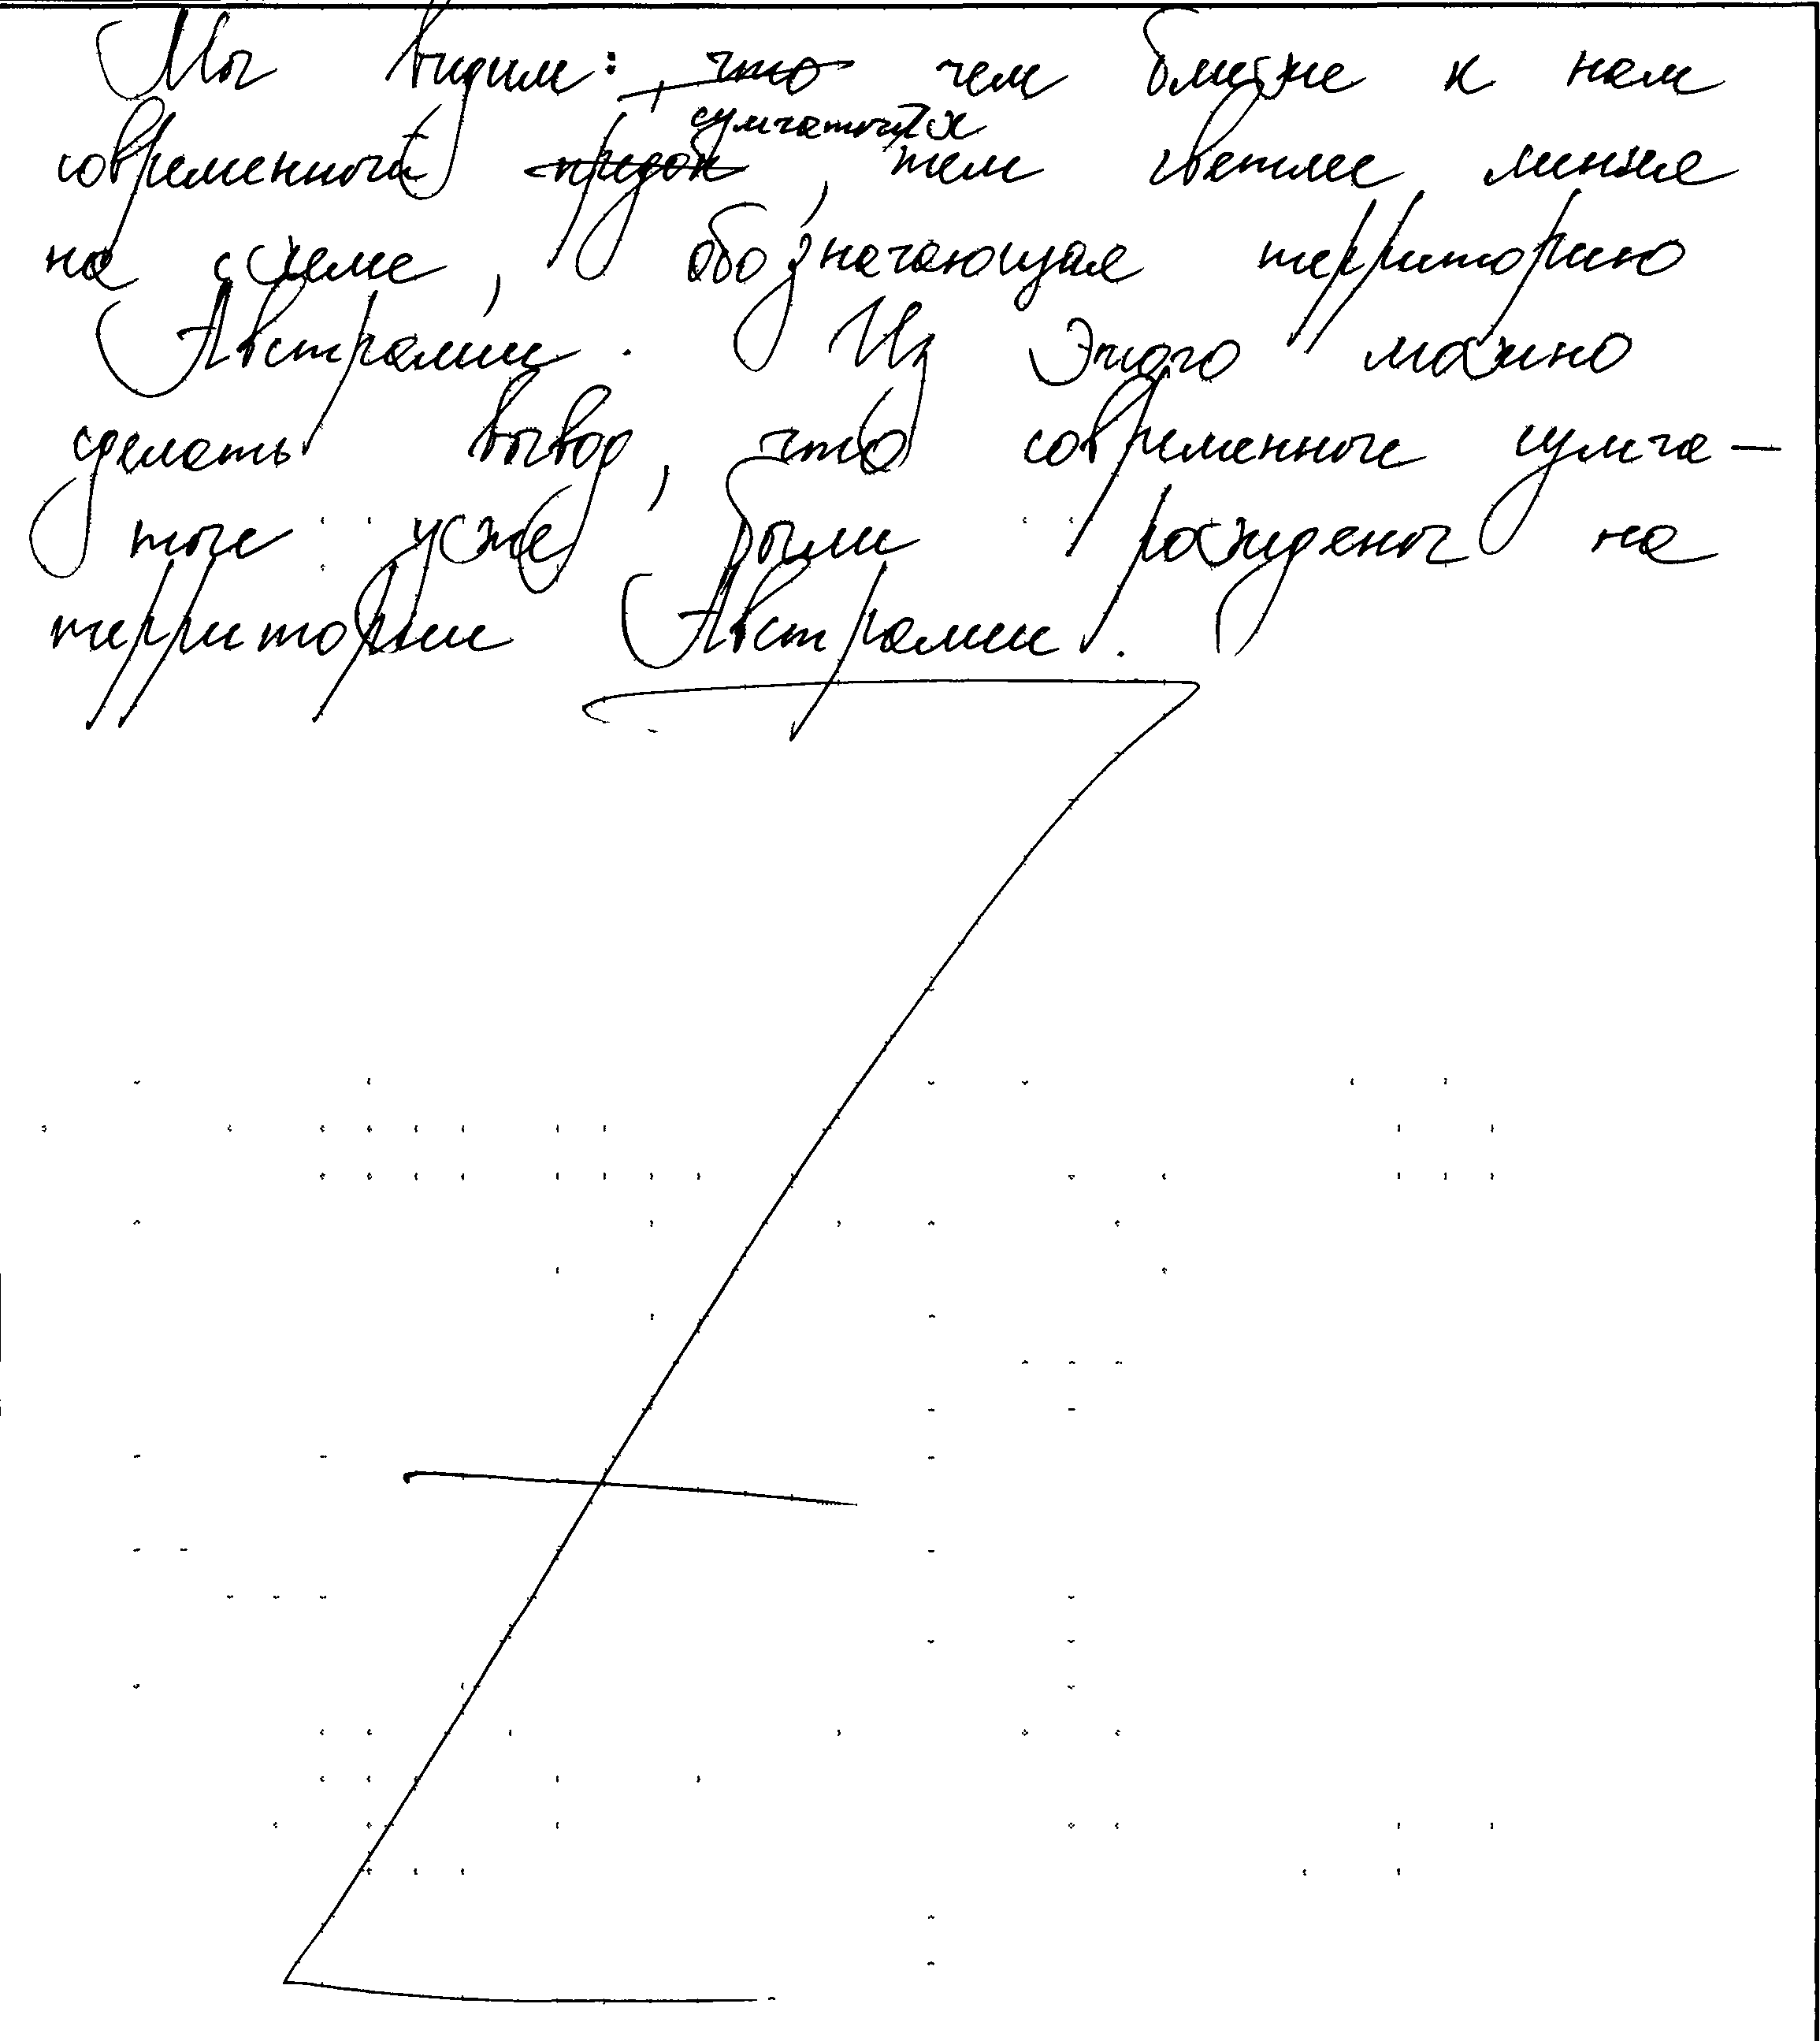 Мы видим: чем ближе к нам
сумчатый
современный предок, тем светлее линия
на схеме, обозначающая территорию
Австралии. Из этого можно
сделать вывод, что современные сумча-
тые уже были рождены на
территории Австралии.